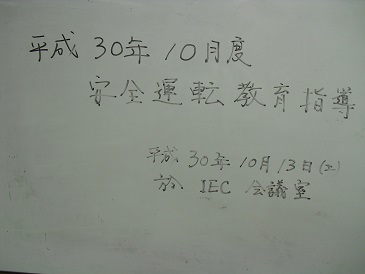 平成 30年 10月度
安全運転教育指導
平成 30年 10月13日(土)
於 IEC 会議室